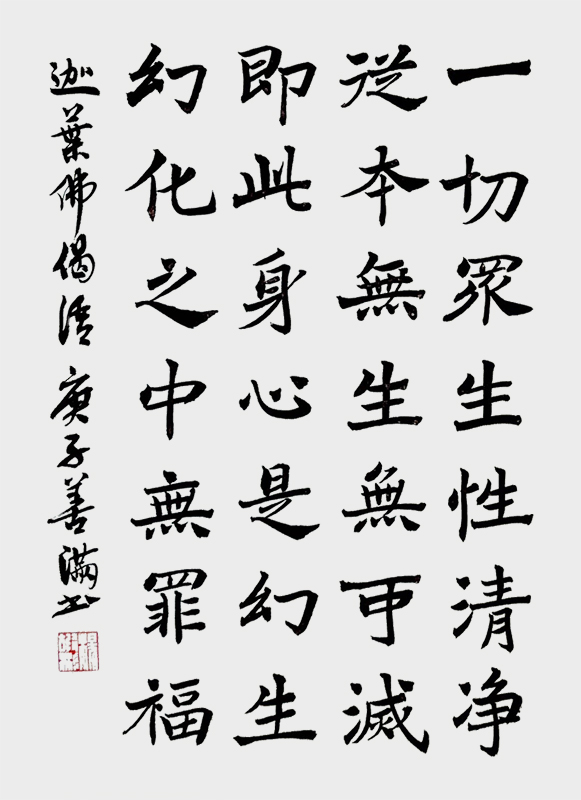 一切眾生性清净
從本無生無可滅
即此身心是幻生
幻化之中無罪福
迦葉佛偈清庚子善滿书